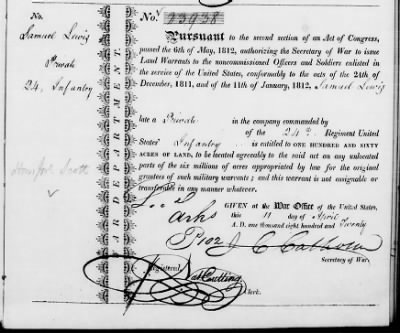 No.
Samuel Lewis
Private
24. Infantry
WAR DEPARTMENT.
No. 23938
Pursuant to the second section of an Act of Congress,
passed the 6th of May, 1812, authorizing the Secretary of War to issue
Land Warrants to the noncommissioned Officers and Soldiers enlisted
in the service of the United States, conformably to the acts of the 24th of
December, 1811, and of the 11th of January, 1812, Samuel Lewis
late a Private in the company commanded by
of the 24th Regiment United
States' Infantry is entitled to ONE HUNDRED AND SIXTY
ACRES OF LAND, to be located agreeably to the said act on any unlocated
parts of the six millions of acres appropriated by law for the original
grantees of such military warrants; and this warrant is not assignable or
transferable in any manner whatever.
GIVEN at the War Office of the United States,
this 11 day of April
A. D. one thousand eight hundred and Twenty
Arks
J C Calhoun
Secretary of War.
Registered
Clerk.